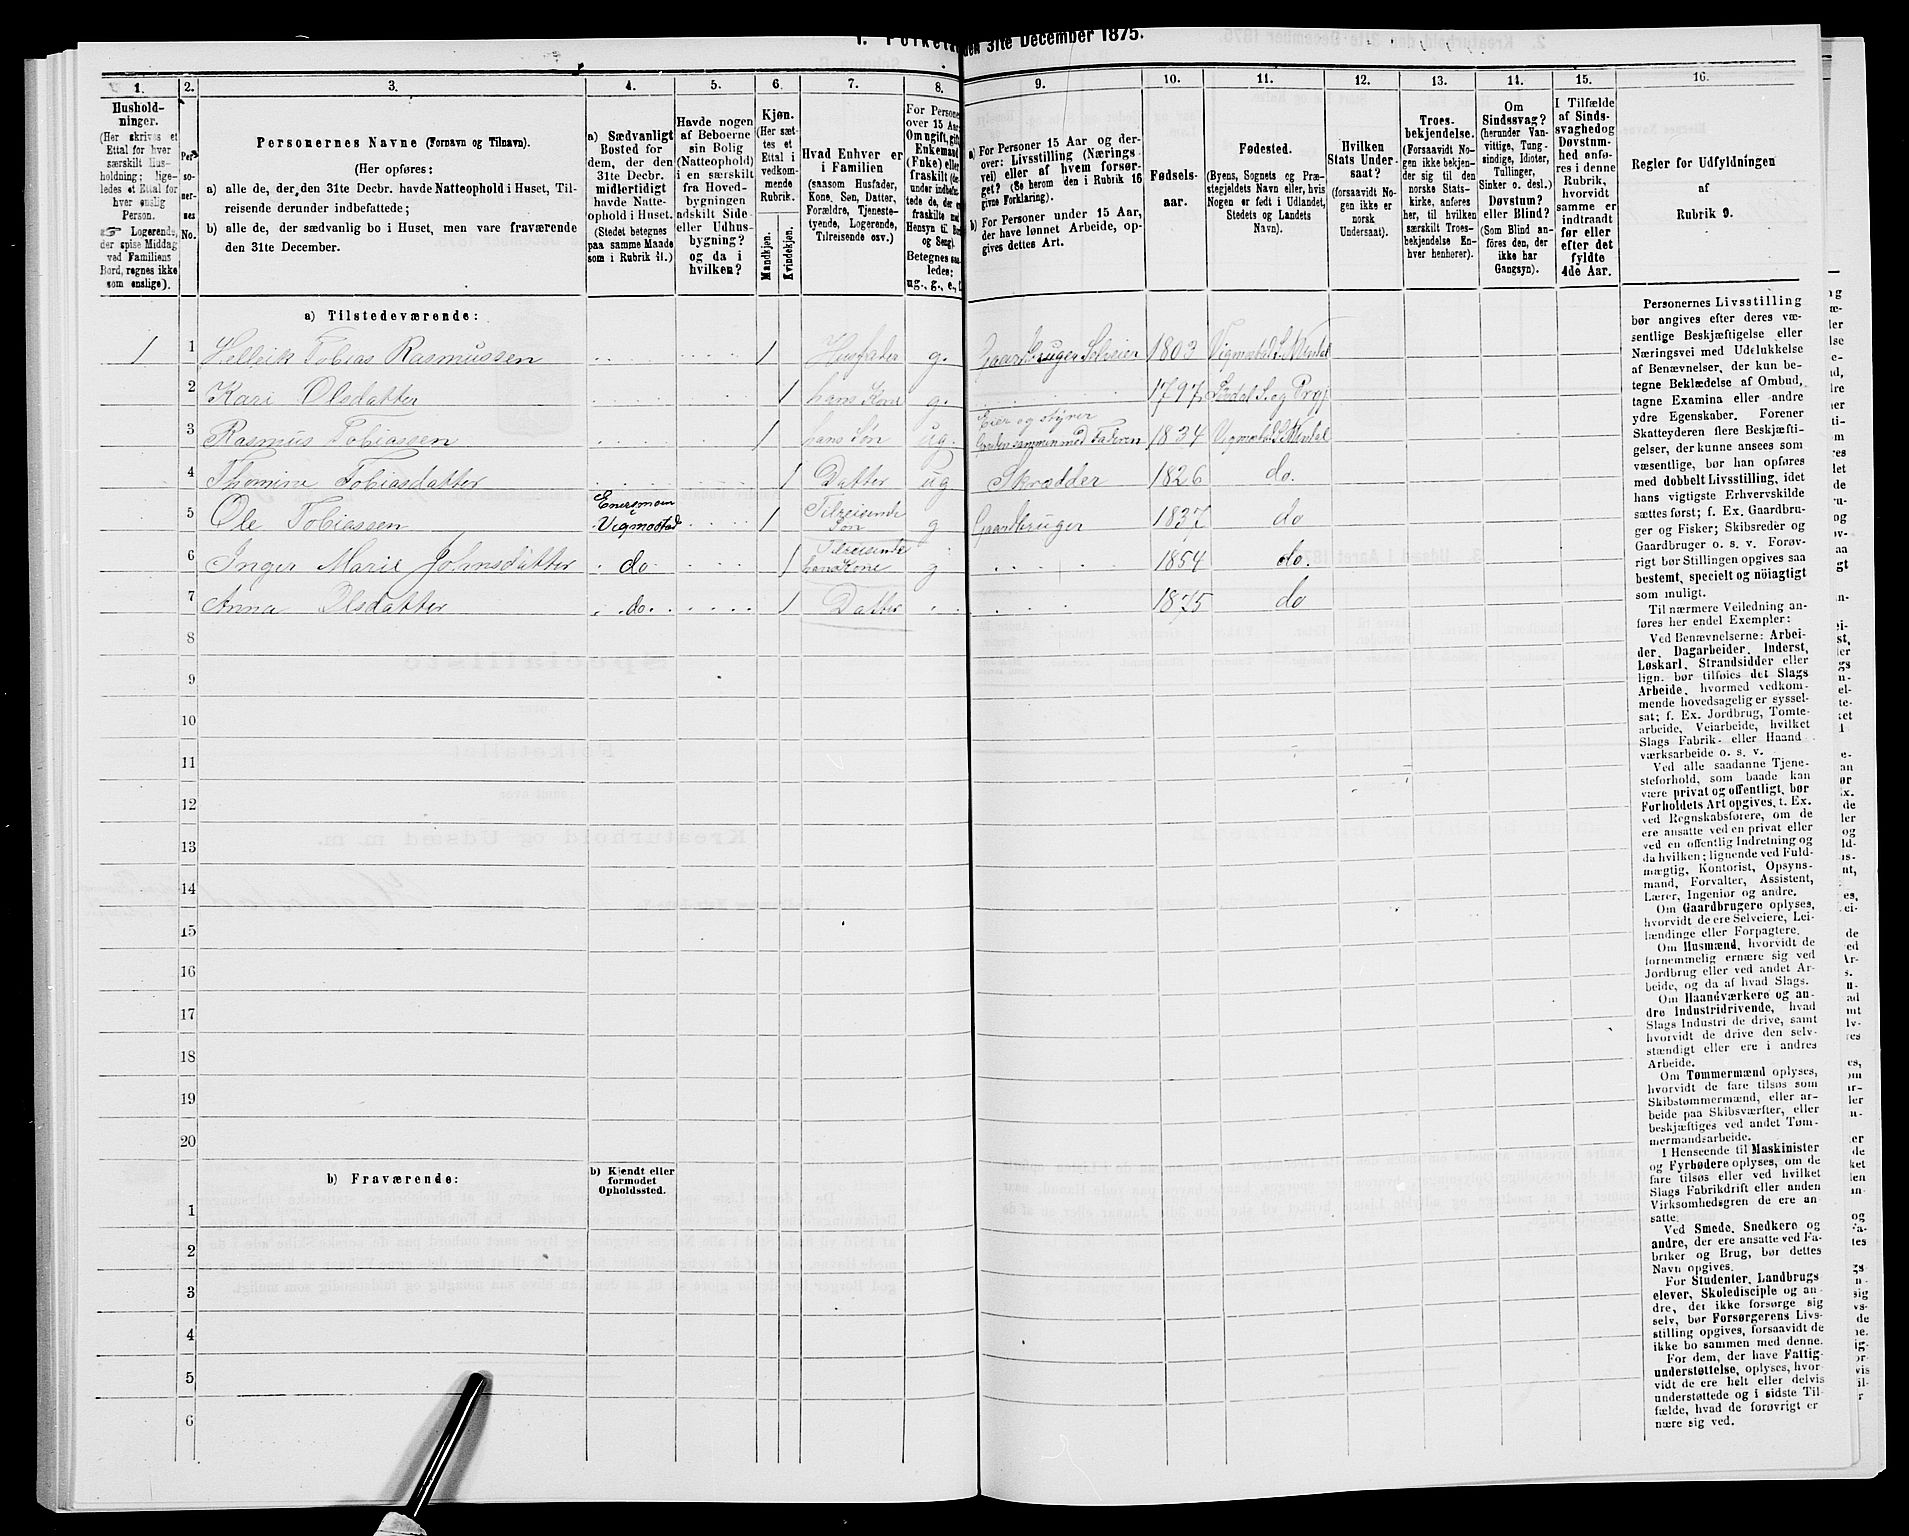 den 31te December 1875.
1. 2. 3. 4. 5. 6. 7. 8. 9. 10. 11. 12. 13. 14. 15. 16.
Hushold-
ninger.
(Her skrives et
Ettal for hver
særskilt Hus-
holdning; lige-
ledes et Ettal for
hver enslig
Person.
☞ Logerende,
der spise Middag
ved Familiens
Bord, regnes ikke
som enslige).
Per-
so-
ner-
nes
No.
Personernes Navne (Fornavn og Tilnavn).
(Her opføres:
a) alle de, der den 31te Decbr. havde Natteophold i Huset, Til-
reisende derunder indbefattede;
b) alle de, der sædvanlig bo i Huset, men vare fraværende
den 31te December.
a) Sædvanligt
Bosted for
dem, der den
31te Decbr.
midlertidigt
havde Natte-
ophold i Huset.
(Stedet betegnes
paa samme Maade
som i Rubrik 11.)
Havde nogen
af Beboerne
sin Bolig
(Natteophold)
i en særskilt
fra Hoved-
bygningen
adskilt Side-
eller Udhus-
bygning?
og da i
hvilken?
Kjøn.
(Her sæt-
tes et
Ettal i
vedkom-
mende
Rubrik.
Mandkjøn.
Kvindekjøn.
Hvad Enhver er
i Familien
(saasom Husfader,
Kone, Søn, Datter,
Forældre, Tjeneste-
tyende, Logerende,
Tilreisende osv.)
For Persone
over 15 Aar
Om ugift, gift
Enkemand
(Enke) eller
fraskilt
Betegnes saa-
ledes:
ug., g., e., f.
a) For Personer 15 Aar og der-
over: Livsstilling (Nærings-
vei) eller af hvem forsør-
get? (Se herom den i Rubrik 16
givne Forklaring).
b) For Personer under 15 Aar,
der have lønnet Arbeide, op-
gives dettes Art.
Fødsels-
aar.
Fødested.
(Byens, Sognets og Præ-
stegjeldets Navn eller, hvis
Nogen er født i Udlandet,
Stedets og Landets
Navn).
Hvilken
Stats Under-
saat?
(forsaavidt No-
gen ikke er
norsk
Undersaat).
Troes-
bekjendelse.
(Forsaavidt No-
gen ikke bekjen-
der sig til den
norske Stats-
kirke, anføres
her, til hvilken
særskilt Troes-
bekjendelse En-
hver henhører).
Om
Sindssvag?
(herunder Van-
vittige, Tung-
sindige, Idioter,
Tullinger,
Sinker o. desl.)
Døvstum?
eller Blind?
(Som Blind an-
føres den, der
ikke har
Gangsyn).
I Tilfælde
af Sinds-
svaghed og
Døvstum-
hed anfø-
res i denne
Rubrik,
hvorvidt
samme er
indtraadt
før eller
efter det
fyldte
4de Aar.
Regler for Udfyldningen
af
Rubrik 9.
a) Tilstedeværende:
1 1 Tobias Rasmussen 1 Husfader g. Gaardbruger Selveier 1803
2 Kari Olsdatter 1 hans Kone g. 1797
Eier og styrer
3 Rasmus Tobiassen 1 hans Søn ug. Gaarden sammen med Faderen 1834
4 Thomine Tobiasdatter 1 Datter ug Skrædder 1826 do.
5 Ole Tobiassen Vigmostad 1 Tilreisende Søn g Gaardbruger 1837 do
6 Inger Marie Johnsdatter do 1 Tilreisende hans Kone g 1854 do.
7 Anna Olsdatter do. 1 Datter 1875 do
8
9
10
11
12
13
14
15
16
17
18
19
20
b) Fraværende:
b) Kjendt eller
formodet
Opholdssted.
1
2
3
4
5
6
Personernes Livsstilling
bør angives efter deres væ-
sentlige Beskjæftigelse eller
Næringsvei med Udelukkelse
af Benævnelser, der kun be-
tegne Beklædelse af Ombud,
tagne Examina eller andre
ydre Egenskaber. Forener
Skatteyderen flere Beskjæfti-
gelser, der kunne ansees som
væsentlige, bør han opføres
med dobbelt Livsstilling, idet
hans vigtigste Erhvervskilde
sættes først; f. Ex. Gaardbru-
ger og Fisker; Skibsreder og
Gaardbruger o. s. v. Forøv-
rigt bør Stillingen opgives saa
bestemt, specielt og nöiagtigt
som muligt.
Til nærmere Veiledning an-
føres her endel Exempler:
Ved Benævnelserne: Arbei-
der, Dagarbeider, Inderst,
Løskarl, Strandsidder eller
lign. bør tilføies det Slags
Arbeide, hvormed vedkom-
mende hovedsagelig er syssel-
sat; f. Ex. Jordbrug, Tomte-
arbeide, Veiarbeide, hvilket
Slags Fabrik- eller Haand
værksarbeide o. s. v.
Ved alle saadanne Tjene-
steforhold, som baade kan
være privat og offentligt, bør
Forholdets Art opgives, t. Ex.
ved Regnskabsførere, om de
ere ansatte ved en privat eller
ved en offentlig Indretning og
da hvilken; lignende ved Fuld-
mægtig, Kontorist, Opsyns-
mand, Forvalter, Assistent,
Lærer, Ingeniør og andre.
Om Gaardbrugere oplyses,
hvorvidt de ere Selveiere, Lei-
lændinge eller Forpagtere.
Om Husmænd, hvorvidt de
fornemmelig ernære sig ved
Jordbrug eller ved andet Ar-
beide, og da af hvad Slags.
Om Haandværkere og an-
dre Industridrivende, hvad
Slags Industri de drive, samt
hvorvidt de drive den selv-
stændigt eller ere i andres
Arbeide.
Om Tømmermænd oplyses,
hvorvidt de fare tilsøs som
Skibstømmermænd, eller ar-
beide paa Skibsværfter, eller
beskjæftiges ved andet Tøm-
mermandsarbeide.
I Henseende til Maskinister
og Fyrbødere oplyses, om de
fare tilsøs eller ved hvilket
Slags Fabrikdrift eller anden
Virksomhedsgren de ere an-
satte.
Ved Smede, Snedkere og
andre, der ere ansatte ved Fa-
briker og Brug, bør dettes
Navn opgives.
For Studenter, Landbrugs
elever, Skoledisciple og an-
dre, der ikke forsørge sig
selv, bør Forsørgerens Livs-
stilling opgives, forsaavidt de
ikke bo sammen med denne.
For dem, der have Fattig-
understøttelse, oplyses, hvor-
vidt de ere helt eller delvis
understøttede og i sidste Til-
fælde, hvad de forøvrigt er
nære sig ved.